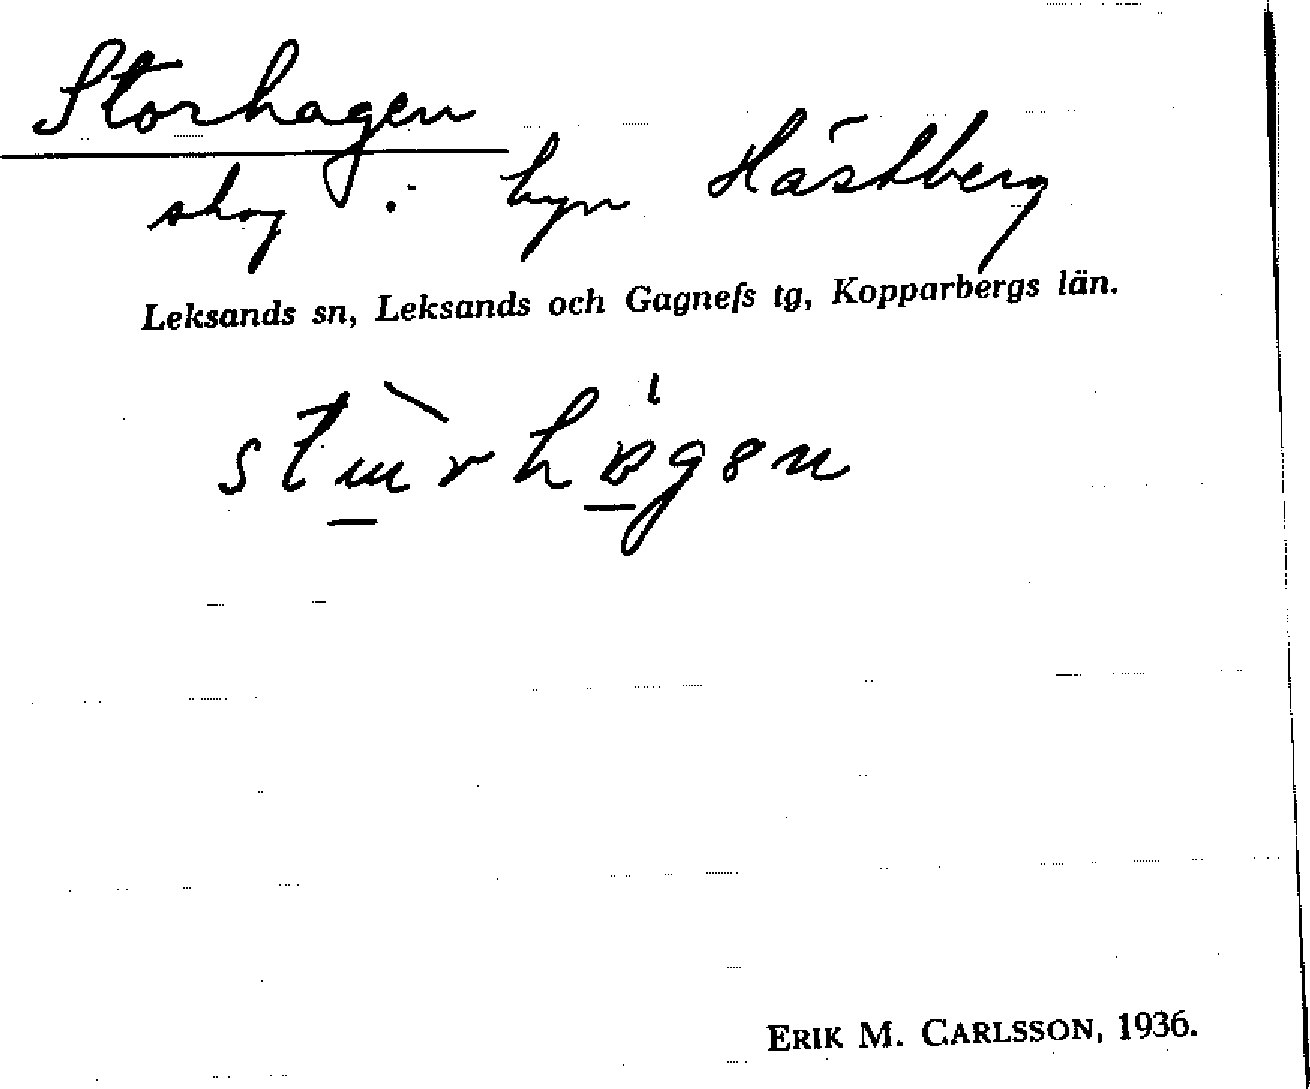 Storhagen
skog i byn Hästberg
Leksands sn, Leksands och Gagnefs tg, Kopparbergs län.
ERIK M. CARLSSON, 1936.